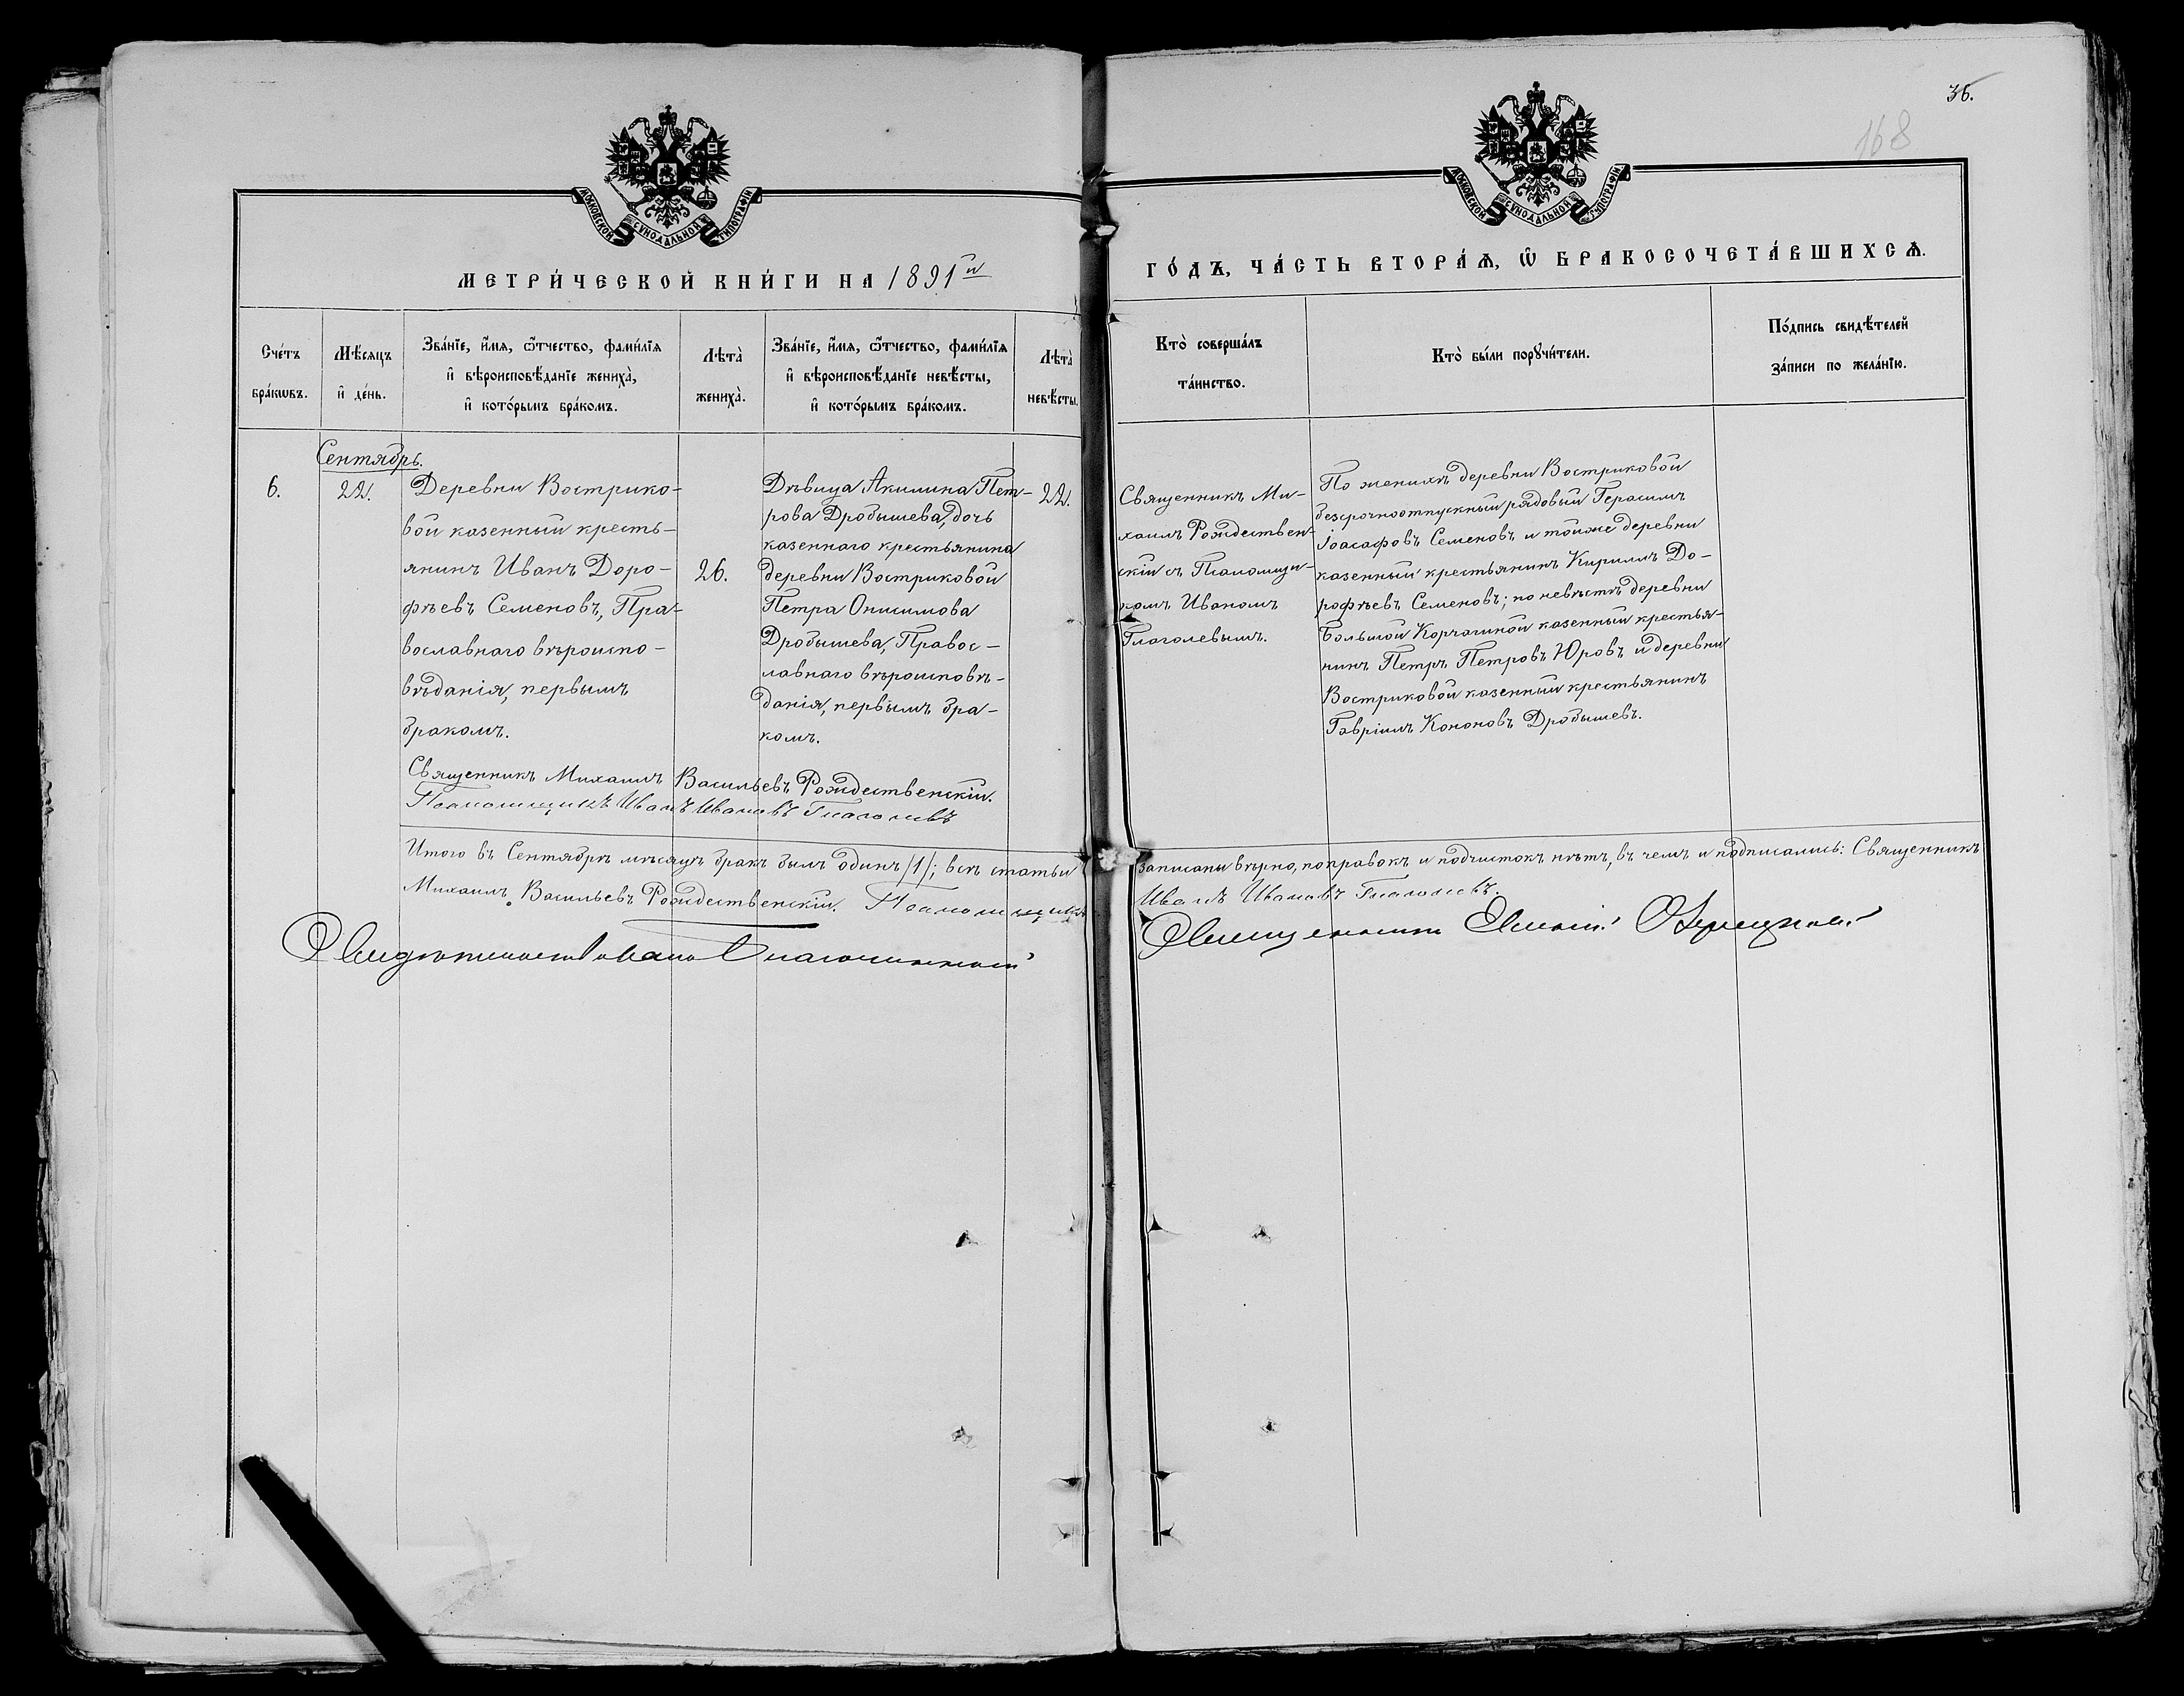 36.
168
МОСКОВСКОЙ СѴНОДАЛЬНОЙ ТИПОГРАФІИ
МОСКОВСКОЙ СѴНОДАЛЬНОЙ ТИПОГРАФІИ
МЕТРИ́ЧЕСКОЙ КНИ́ГИ НА 1891й
ГО́ДЪ, ЧА́СТЬ ВТОРА́Ѧ, Ѡ҆ БРАКОСОЧЕТА́ВШИХСѦ.
Сче́тъ
бра́кѡвъ.
Мѣ́сяцъ
и҆ де́нь.
Зва́нїе, и҆́мѧ, ѻ҆́тчество, фами́лїѧ
и҆ вѣроисповѣ́данїе жениха̀,
и҆ кото́рымъ бра́комъ.
Лѣта̀
жениха̀.
Зва́нїе, и҆́мѧ, ѻ҆́тчество, фами́лїѧ
и҆ вѣроисповѣ́данїе невѣ́сты,
и҆ кото́рымъ бра́комъ.
Лѣта̀
невѣ́сты.
Кто̀ соверша́лъ
та́инство.
Кто̀ бы́ли порꙋчи́тели.
По́дпись свидѣ́телей
за́писи по жела́нїю.
Сентябрь.
6.
22.
Деревни Вострико-
вой казенный кресть-
янинъ Иванъ Доро-
фѣевъ Семеновъ, Пра-
вославнаго вѣроиспо-
вѣданія, первымъ
бракомъ.
26.
Дѣвица Акилина Пет-
рова Дробышева, дочь
казеннаго крестьянина
деревни Востриковой
Петра Онисимова
Дробышева, Правос-
лавнаго вѣроисповѣ-
данія, первымъ бра-
комъ.
22.
Священникъ Ми-
хаилъ Рождествен-
скій съ Псаломщи-
комъ Иваномъ
Глаголевымъ.
По женихѣ деревни Востриковой
безсрочноотпускный рядовый Герасимъ
Іоасафовъ Семеновъ и тойже деревни
казенный крестьянинъ Кириллъ До-
рофѣевъ Семеновъ; по невѣстѣ деревни
Большой Корчагиной казенный крестья-
нинъ Петръ Петровъ Юровъ и деревни
Востриковой казенный крестьянинъ
Гавріилъ Кононовъ Дробышевъ.
Священникъ Михаилъ Васильевъ Рождественскій.
Псаломщикъ Иванъ Ивановъ Глаголевъ
Итого въ Сентябрѣ мѣсяцѣ бракъ былъ одинъ /1/; всѣ статьи записаны вѣрно, поправокъ и подчистокъ нѣтъ, въ чемъ и подписались: Священникъ
Михаилъ Васильевъ Рождественскій. Псаломщикъ Иванъ Ивановъ Глаголевъ.
Свидѣтельствовалъ Благочинный Священникъ Озерецков